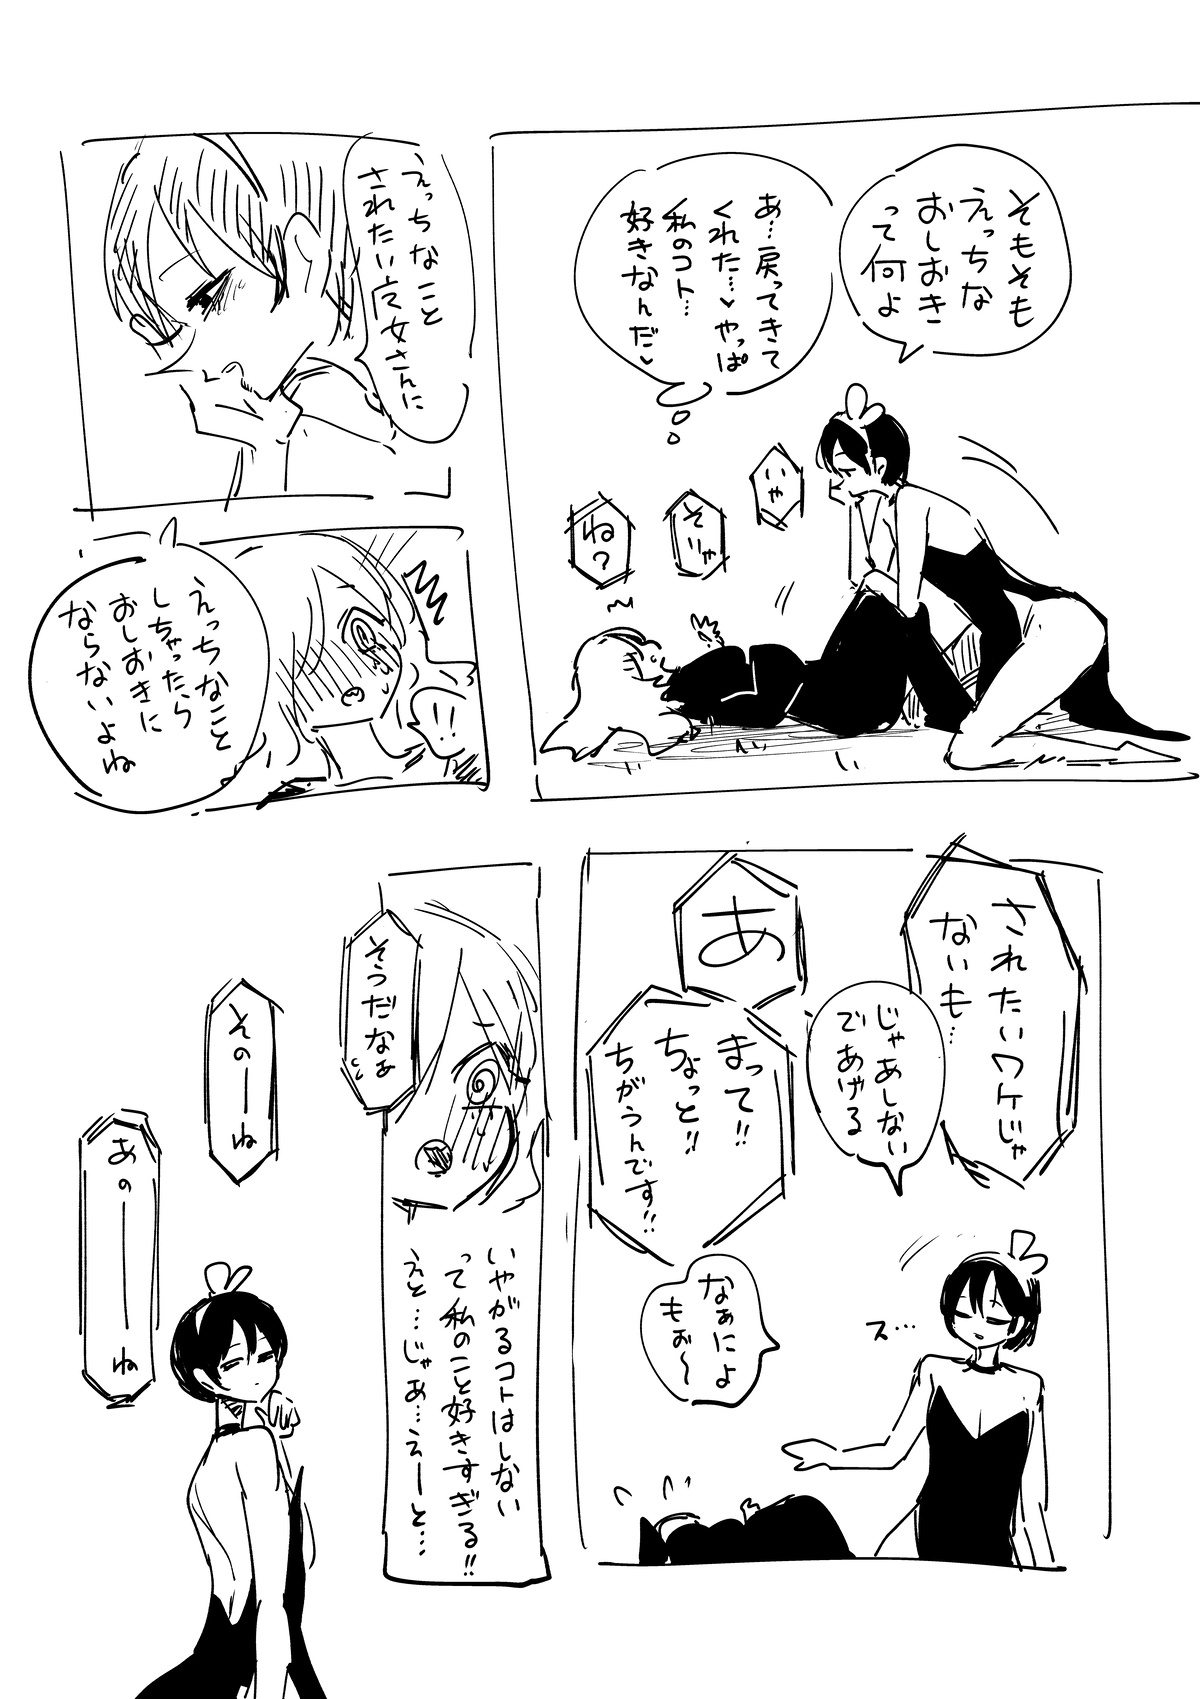 そもそも
えっちな
おしおき
って何よ
あ…戻ってきて
くれた…♥やっぱ
私のコト…
好きなんだ♥
いや
そりゃ
ね?
えっちなこと
されたい彼女さんに
えっちなこと
しちゃったら
おしおきに
ならないよね
!!
されたいワケじゃ
ないも…
じゃあしない
であげる
あ
まって!!
ちょっと!!
ちがうんです!!
なぁによ
もぉ〜
ス…
そうだなぁ
いやがるコトはしない
って私のこと好きすぎる!!
えと…じゃあ…えーと…
そのーね
あのーーね